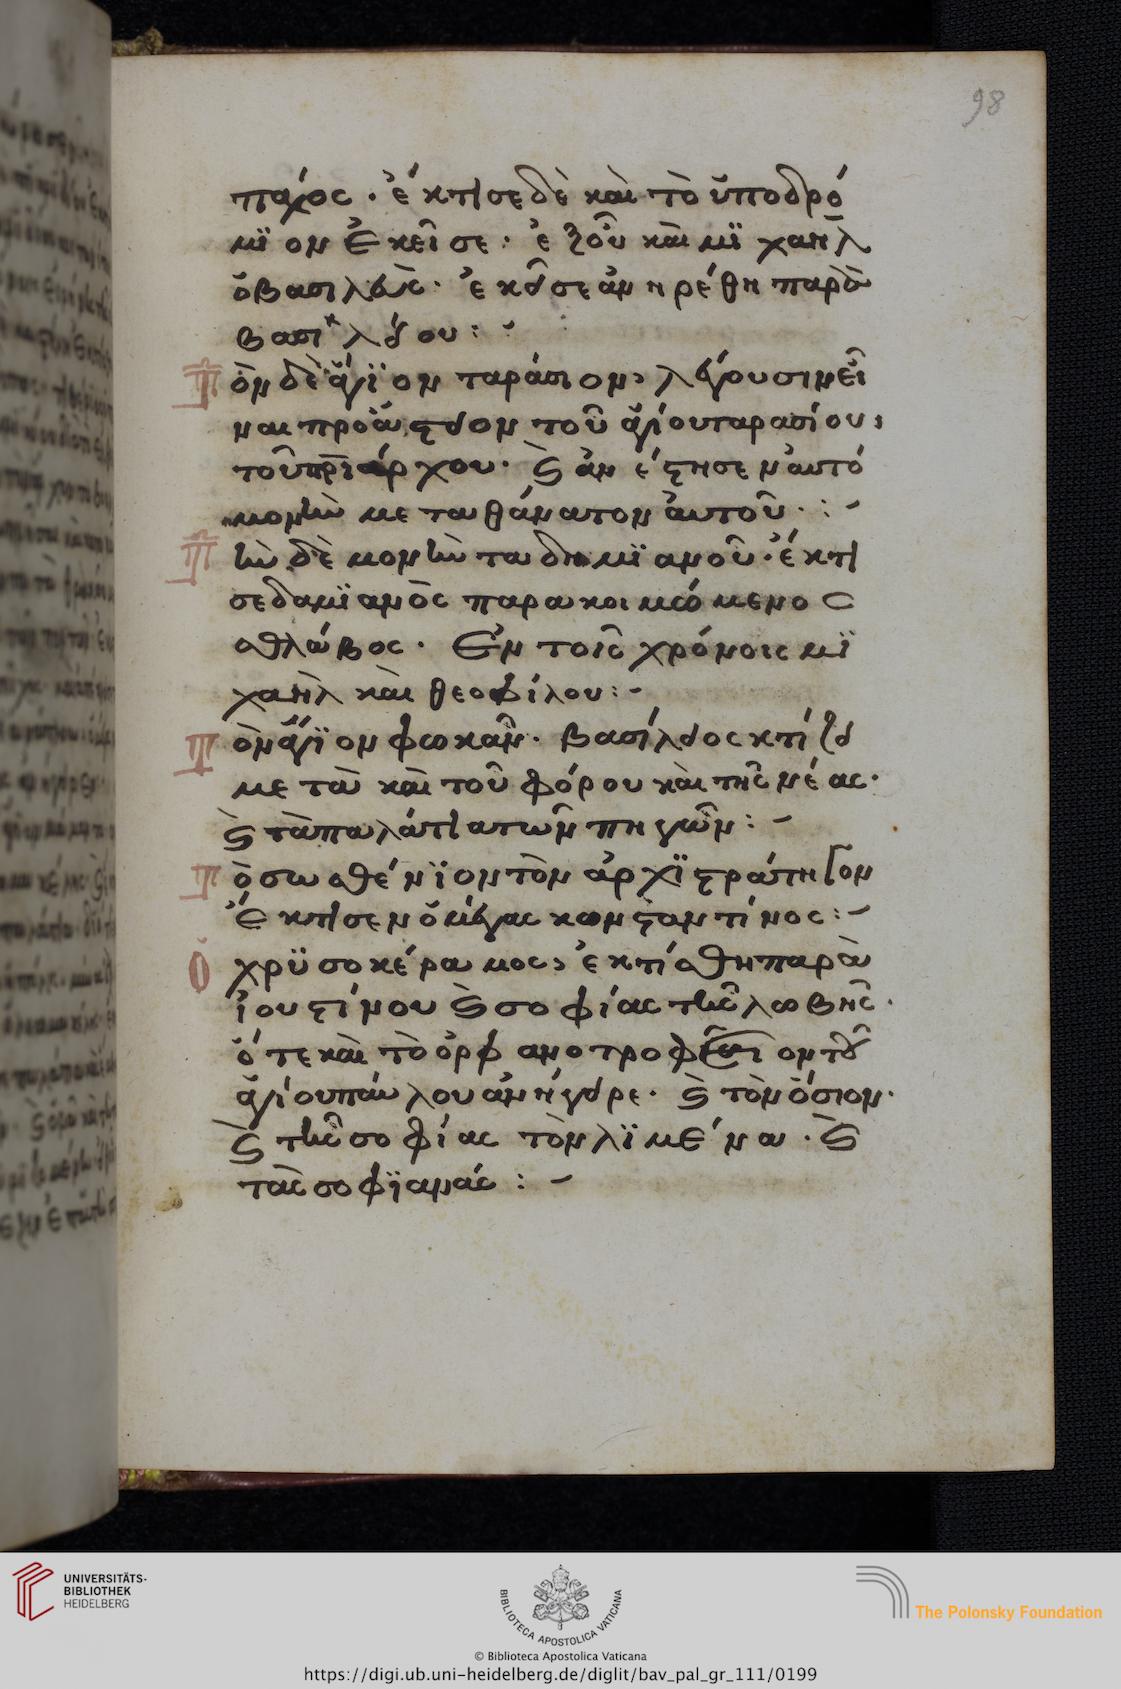 98
παχος · ἔκτησε δὲ καὶ τὸ ὑποδρό
μϊον ἐκεῖσε · ἐξ οὗ καὶ μϊχαὴλ
ὁ βασιλεὺς · ἐκεῖσε ἀνηρέθη παρὰ
βασιλείου : ~
Τὸν δὲ ἅγϊον ταράσιον, λέγουσιν εἶ
ναι προάστειον τοῦ ἁγίου ταρασίου,
τοῦ πρϊάρχου · καὶ ἀνέστησεν αὐτὸ
μονὴν μετὰ θάνατον αὐτοῦ · : ~
Τὴν δὲ μονὴν τὰ δημϊανοῦ · ἔκτη
σε δαμϊανὸς παρακοιμώμενος
ὁ θλάβος · Ἐν τοῖς χρόνοις μϊ
χαὴλ καὶ θεοφίλου : ~
Τὸν ἅγϊον φωκᾶν · βασίλειος κτίζει
μετὰ καὶ τοῦ φόρου καὶ τῆς νέας ·
καὶ τὰ παλάτια τῶν πηγῶν : ~
Τὸ σωσθένϊον τὸν ἀρχϊστράτηγον
Ἔκτησεν ὁ μέγας κωνσταντίνος : ~
Ὁ χρϋσοκέραμος, ἐκτίσθη παρὰ
ἰουστίνου καὶ σοφίας τῆς λωβῆς ·
ὅτε καὶ τὸ ὀρφανοτροφεῖον τοῦ
ἁγίου παύλου ἀνήγειρε · καὶ τὸν ὅσιον ·
καὶ τῆς σοφίας τὸν λϊμένα · καὶ
τὰς σοφϊανάς : ~
UNIVERSITÄTS-
BIBLIOTHEK
HEIDELBERG
BIBLIOTECA APOSTOLICA VATICANA
The Polonsky Foundation
© Biblioteca Apostolica Vaticana
https://digi.ub.uni-heidelberg.de/diglit/bav_pal_gr_111/0199